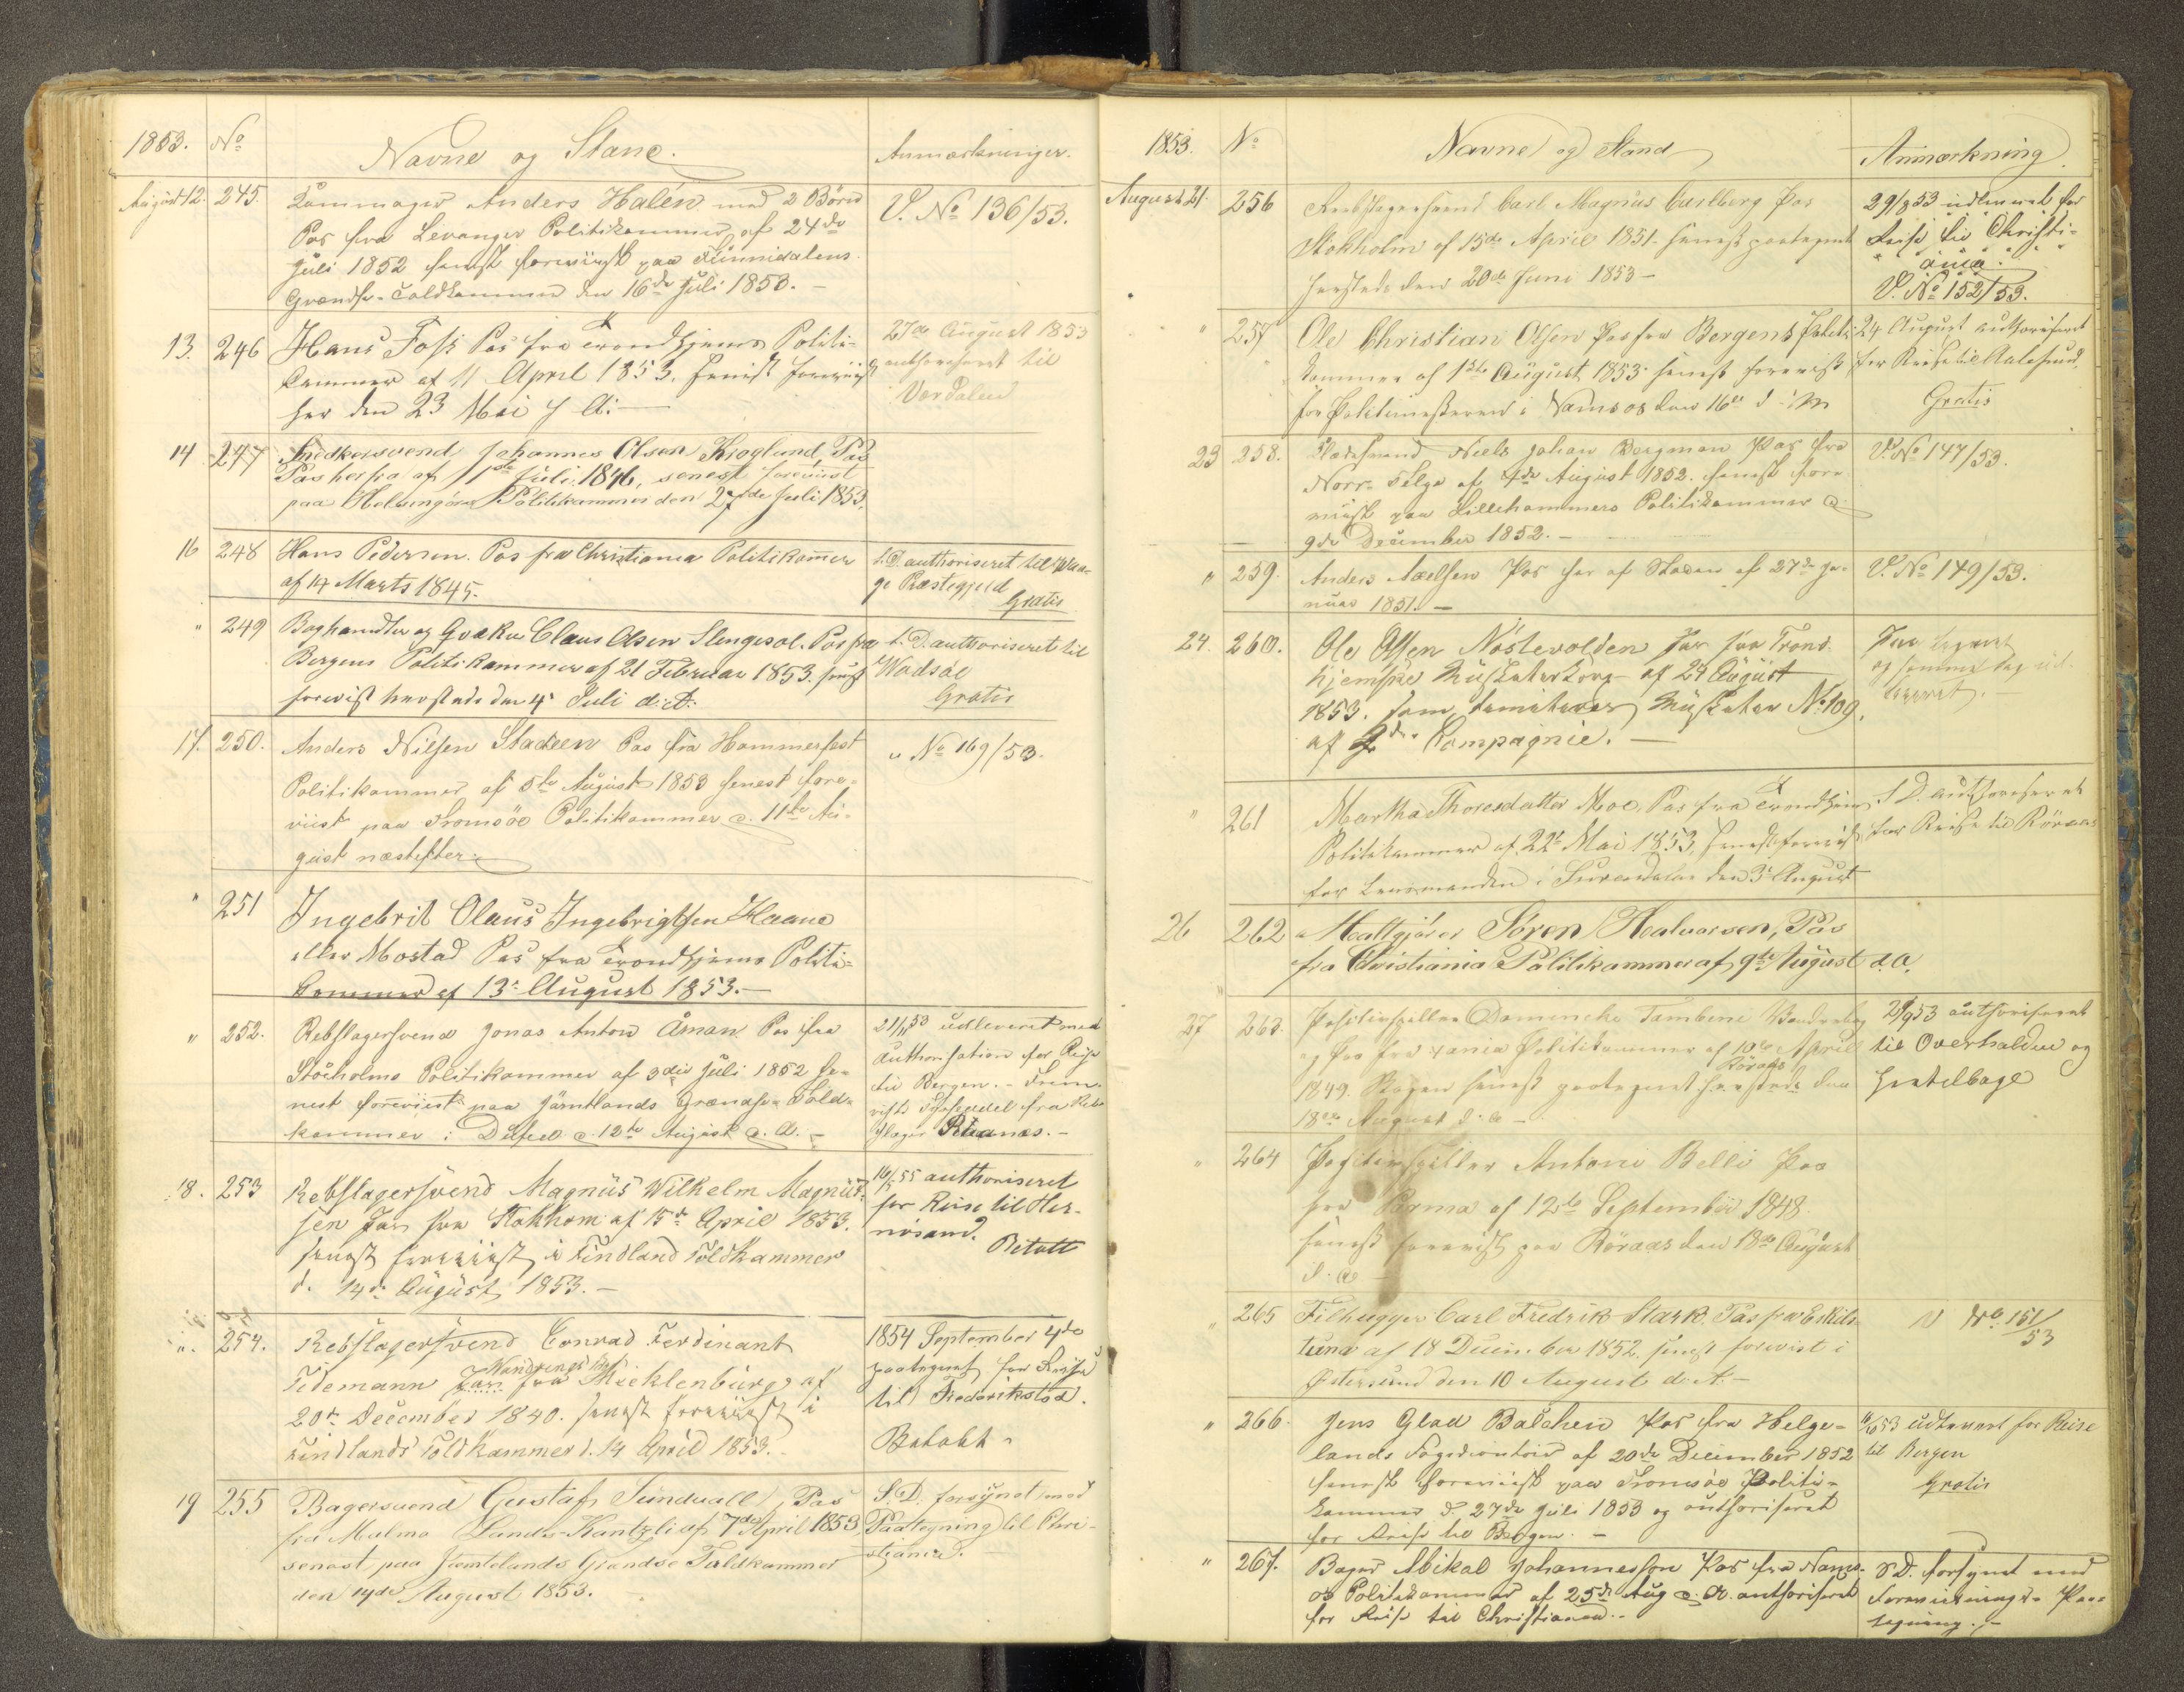 1853. No Navne og Stand. Anmærkninger.
August 12. 245. Kammager Anders Halén med 2 Börn V. No 136/53.
Pas fra Levanger Politikammer af 24de
Juli 1852 senest foreviist paa
Grændse-Toldkammer den 16de Juli 1853.-
13. 246 Hans Foss Pas fra Trondhjems Politi= 27de August 1853
kammer af 11 April 1853, senest foreviist authoriseret til
her den 23 Mai d. A:- Værdalen
14 247 Snedkersvend Johannes Olsen Kroglund, Pas
Pas herfra af 1ste Juli 1846, senest foreviist
paa Helsingörs Politikammer den 27de Juli 1853.
16 248 Hans Pedersen. Pas fra Christiania Politikammer s. D. authoriseret til Waa-
af 14 Marts 1845. ge Præstegjeld
Gratis
" 249 Boghandler og Qvæker Claus Olsen Slengesol. Pas fra s. D. authoriseret til
Bergens Politikammer af 21 Februar 1853. senest Wadsöe
forevist herstede den 4 Juli d. A: Gratis
17. 250. Anders Nilsen Stadeen Pas fra Hammerfest " No 169/53.
Politikammer af 5te August 1853 senest fore-
viist paa Tromsöe Politikammer d. 11te Au-
gust næstefter.
" 251 Ingebrit Olaus Ingebrigtsen Haane
eller Mostad Pas fra Trondhjems Politi=
kammer af 13. August 1853.-
" 252. Rebslagersvend Jonas Anton Åman Pas fra 21/11 53 udleveret med
Stocholms Politikammer af 3die Juli 1852 se- authorisation for Reise
nest foreviist paa Jämtlands Grændse-Told- til Bergen. - Frem-
kammer i d. 12te August d. A. - viste fra Reb-
slager
18. 253 Rebslagersvend Magnus Wilhelm Magnus- 16/5 55 authoriseret
sen Pas fra Stokhom af 15de April 1853. for Reise til Her-
senest foreviist i Toldkammer nösand.
d. 14de August 1853.- Betalt
" 254. Rebslagersvend Conrad Ferdinant 1854 September 4de
Wandringsbog
Tidemann Pas fra Mecklenburg af paategnet for Reise
20de December 1840. senest foreviist i til Frederikstad.
Toldkammer d. 14 April 1853.. Betalt
19 255 Bagersvend Gustaf Sundvall, Pas S. D. forsynet med
fra Malmø Lands-Kantzli af 7de April 1853 Paategning til Chri-
senest paa Jemtelands Grændse Toldkammer stiania.
den 14de August 1853.
1853. No Navne og Stand Anmærkning.
August 21. 256 Rebslagersvend Carl Magnus Carlberg Pas 29/8 53 udleveret for
Stokholm af 15de April 1851. senest paategnet Reise til Christi-
herstede den 20de Juni 1853- ania.
V. No 152/53.
" 257 Ole Christian Olsen Pas fra Bergens Politi- 24 August authoriseret
kammer af 1ste August 1853 senest forevist for Reise til Aalesund.
for Politimesteren i Namsos den 16de d. M Gratis
23 258. Niels Johan Bergman Pas fra V. No 147/53.
Norr-Telge af 4de August 1852. senest fore-
viist paa Lillehammers Politikammer d.
9de December 1852.-
" 259. Anders Axelsen Pas her af Staden af 27de Ja- V. No 149/53.
nuar 1851.-
24. 260. Ole Olsen Nöstevolden Pas fra Trond- Paategnet
hjemske Musketerkorps af 24 August og samme dag ud-
1853. som Musketer No 109. leveret.-
af 2de Kompagnie.-
" 261 Martha Thoresdatter Moe, Pas fra Trondhjems S. D. authoriseret
Politikammer af 22de Mai 1853, senest foreviist for Reise til Röraas
for Lensmanden i Surendalen den 3de August
26 262 Maltgjörer Sören Halvorsen, Pas
fra Christiania Politikammer af 9de August d. A.
27 263. Positivspiller Dominicho Tambini Vandrebog 29/9 53 authoriseret
og Pas fra xania Politikammer af 10de April til Overhalden og
Röraas
1849. Bogen senest paategnet herstede den hertilbage
18de August d. A-
" 264 Positivspiller Antoni Belli Pas
fra Parma af 12te September 1848.
senest forevist paa Röraas den 18de August
d. A-
" 265 Filhugger Carl Fredrik Stark. Pas fra Eskils- V No 151/53
tuna af 18 December 1852. senest forevist i
Østersund den 10 August d. A.-
" 266. Jens Glad Balchen Pas fra Helge- 11/10 53 udleveret for Reise
lands Fogedcontoir af 20de December 1852 til Bergen
senest foreviist paa Tromsöe Politi- Gratis
kammer d. 27de Juli 1853 og authoriseret
for Reise til Bergen.-
" 267. Bager Mikal Johannesson Pas fra Nams- S. D. forsynet med
os Politikammer af 25de Aug d. A. authoriseret Forevisnings- Paa-
for Reise til Christiania.- tegning.-